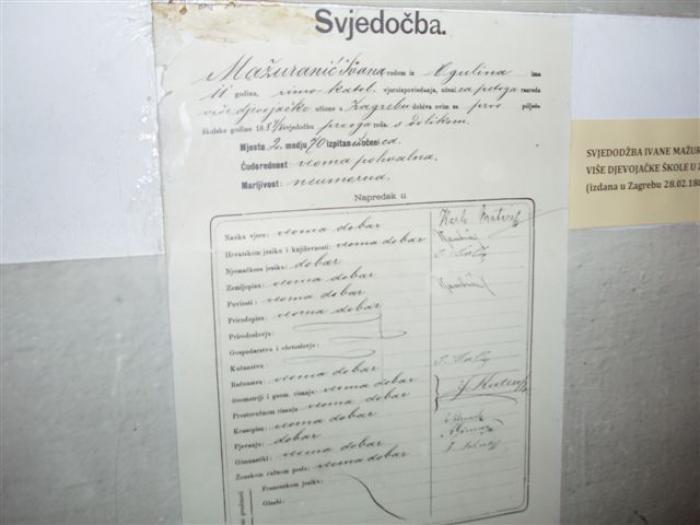 Svjedočba.
Mažuranić Ivana, rodom iz Ogulina ima
11 godina, rimo-katol. vjeroispoviedanja, učeni ca petoga razreda
više djevojačke učione u Zagrebu dobiva ovim za prvo poljeće
školske godine 188 svjedočbu prvoga reda s odlikom.
Mjesto 2. medju 70 izpitan učeni ca.
Ćudorednost: veoma pohvalna.
Marljivost: neumorna.
Napredak u
Nauku vjere: veoma dobar
Hrvatskom jeziku i književnosti: veoma dobar
Njemačkom jeziku: dobar
Zemljopisu: veoma dobar
Poviesti: veoma dobar
Prirodopisu: veoma dobar
Prirodoslovju:
Gospodarstvu i obrtoslovju:
Kućanstvu:
Računstvu veoma dobar
Geometriji i geom. risanju: veoma dobar
Prostoručnom risanju veoma dobar
Krasopisu: veoma dobar
Pjevanju: dobar
Gimnastiki: veoma dobar
Ženskom ručnom poslu: veoma dobar
Francezkom jeziku:
Glasbi:
SVJEDODŽBA IVANE MAŽUR
VIŠE DJEVOJAČKE ŠKOLE U Z
(izdana u Zagrebu 28.02.188